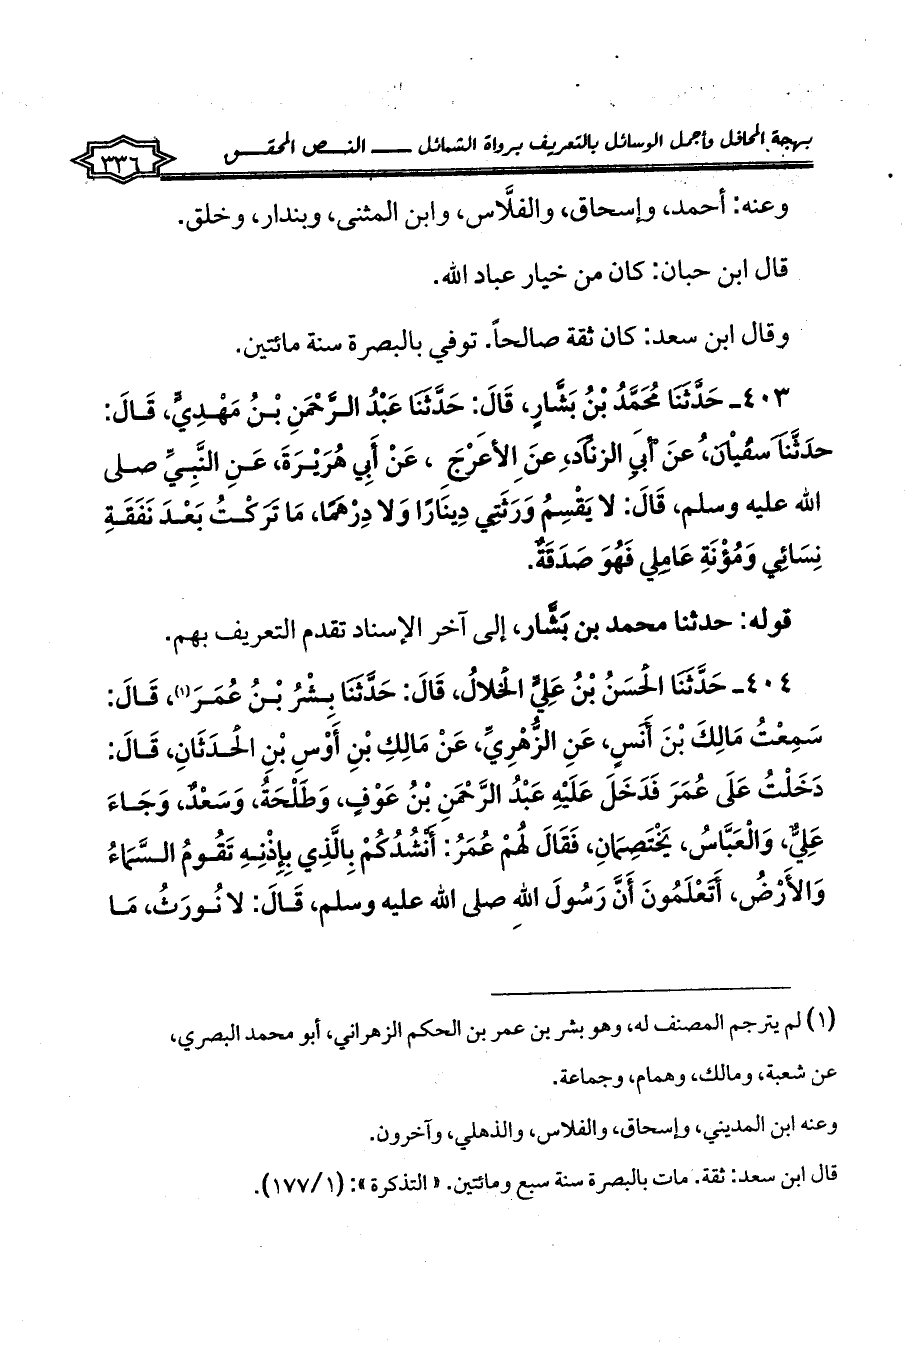 بهجة المحافل وأجمل الوسائل بالتعريف برواة الشمائل ـــ النـص المحقـق
٣٣٦
وعنه: أحمد، وإسحاق، والفلَّاس، وابن المثنى، وبندار، وخلق.
قال ابن حبان: كان من خيار عباد الله.
وقال ابن سعد: كان ثقة صالحاً. توفي بالبصرة سنة مائتين.
٤٠٣ـ حَدَّثَنَا مُحَمَّدُ بْنُ بَشَّارٍ، قَالَ: حَدَّثَنَا عَبْدُ الرَّحْمَنِ بْنُ مَهْدِيٍّ، قَالَ:
حدثَّنَا سفْيَان، عَنْ أَبِي الزنَّاد، عنَ الأعرَجْ ، عَنْ أَبِي هُرَيْرَةَ، عَنِ النَّبِيِّ صلى
الله عليه وسلم، قَالَ: لا يَقْسِمُ وَرَثَتِي دِينَارًا وَلا دِرْهَمًا، مَا تَرَكْتُ بَعْدَ نَفَقَةِ
نِسَائِي وَمُؤْنَةِ عَامِلِي فَهُوَ صَدَقَةٌ.
قوله: حدثنا محمد بن بَشَّار، إلى آخر الإسناد تقدم التعريف بهم.
٤٠٤ـ حَدَّثَنَا الْحَسَنُ بْنُ عَلِيٍّ الْخَلالُ، قَالَ: حَدَّثَنَا بِشْرُ بْنُ عُمَرَ(١)، قَالَ:
سَمِعْتُ مَالِكَ بْنَ أَنَسٍ، عَنِ الزُّهْرِيِّ، عَنْ مَالِكِ بْنِ أَوْسِ بْنِ الْحَدَثَانِ، قَالَ:
دَخَلْتُ عَلَى عُمَرَ فَدَخَلَ عَلَيْهِ عَبْدُ الرَّحْمَنِ بْنُ عَوْفٍ، وَطَلْحَةُ، وَسَعْدٌ، وَجَاءَ
عَلِيٌّ، وَالْعَبَّاسُ، يَخْتَصِمَانِ، فَقَالَ لَهُمْ عُمَرُ: أَنْشُدُكُمْ بِالَّذِي بِإِذْنِهِ تَقُومُ السَّمَاءُ
وَالأَرْضُ، أَتَعْلَمُونَ أَنَّ رَسُولَ اللهِ صلى الله عليه وسلم، قَالَ: لا نُورَثُ، مَا
(١) لم يترجم المصنف له، وهو بشر بن عمر بن الحكم الزهراني، أبو محمد البصري،
عن شعبة، ومالك، وهمام، وجماعة.
وعنه ابن المديني، وإسحاق، والفلاس، والذهلي، وآخرون.
قال ابن سعد: ثقة. مات بالبصرة سنة سبع ومائتين. « التذكرة »: (١/١٧٧).